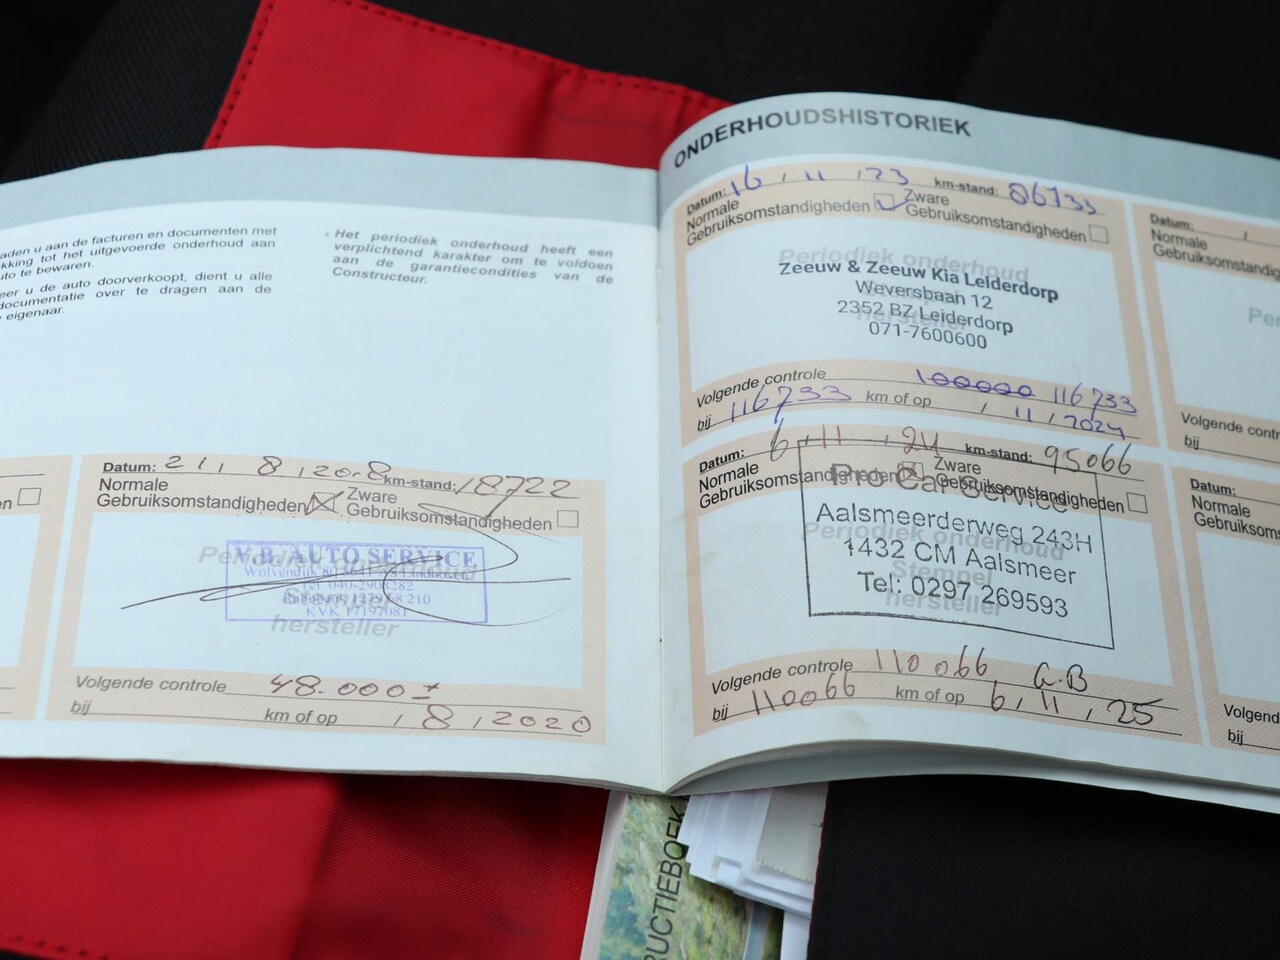 aden u aan de facturen en documenten met
kking tot het uitgevoerde onderhoud aan
uto te bewaren.
eer u de auto doorverkoopt, dient u alle
documentatie over te dragen aan de
e eigenaar.
- Het periodiek onderhoud heeft een
verplichtend karakter om te voldoen
aan de garantiecondities van de
Constructeur.
en
Datum: 21, 8, 20.8 km-stand: 18722
Normale
Gebruiksomstandigheden
Zware
Gebruiksomstandigheden
Periodiek onderhoud
Stempel
hersteller
V.B. AUTO SERVICE
KVK 17197081
Volgende controle 48.000 ±
bij km of op , 8, 2020
ONDERHOUDSHISTORIEK
Datum: 16, 11, 23 km-stand: 86733
Normale
Gebruiksomstandigheden
Zware
Gebruiksomstandigheden
Periodiek onderhoud
hersteller
Zeeuw & Zeeuw Kia Leiderdorp
Weversbaan 12
2352 BZ Leiderdorp
071-7600600
Volgende controle 100000 116733
bij 116733 km of op , 11, 2024
Datum: 6, 11, 24 km-stand: 95066
Normale
Gebruiksomstandigheden
Zware
Gebruiksomstandigheden
Periodiek onderhoud
Stempel
hersteller
Pro Car Service
Aalsmeerderweg 243H
1432 CM Aalsmeer
Tel: 0297 269593
Volgende controle 110066 G.B
bij 110066 km of op 6, 11, 25
Datum: /
Normale
Gebruiksomstandig
Pe
Volgende contr
bij
Datum:
Normale
Gebruiksoms
Volgend
bij
RUCTIEBOEK